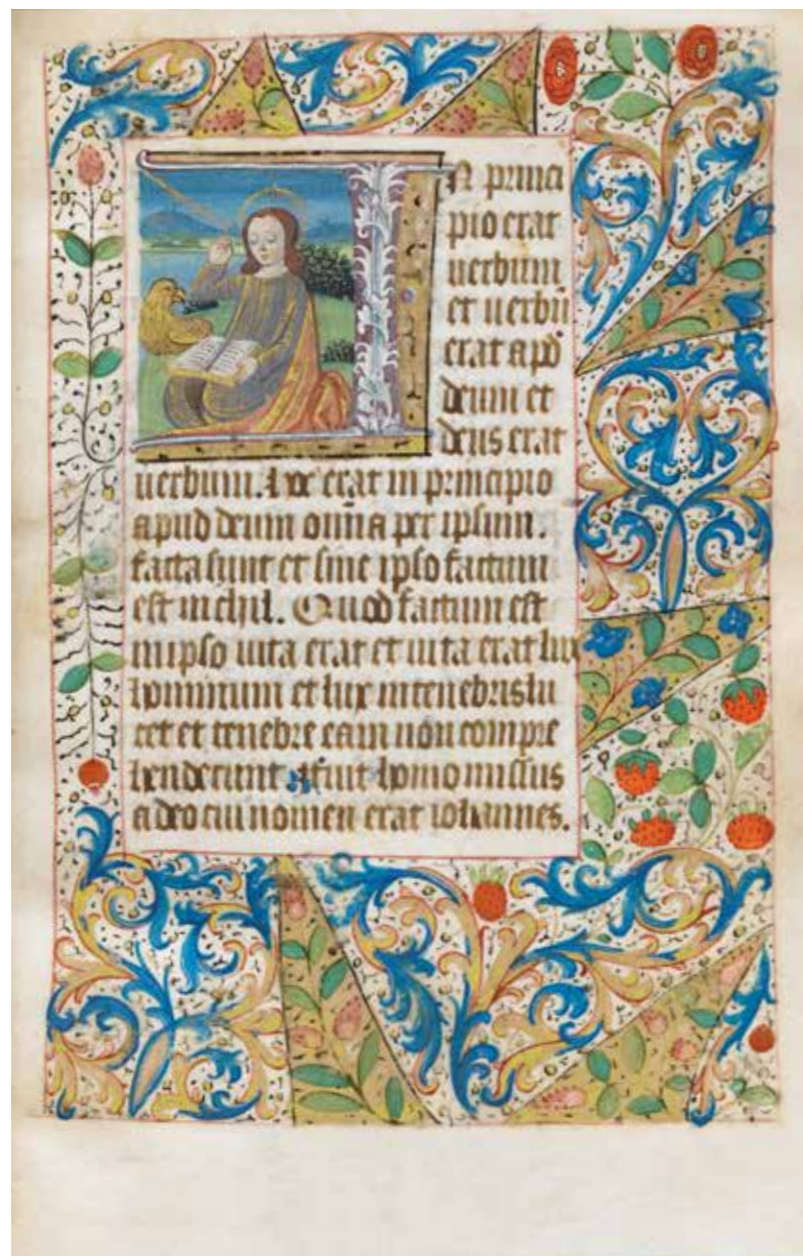 In princi
pio erat
uerbum
et uerbū
erat apd
deum et
deus erat
uerbum. hoc erat in principio
apud deum omīa per ipsum.
facta sunt et sine ipso factum
est nichil. Quod factum est
in ipso uita erat et uita erat lux
hominum et lux in tenebris lu
cet et tenebre eam non compre
henderunt fuit homo missus
a deo cui nomen erat iohannes.